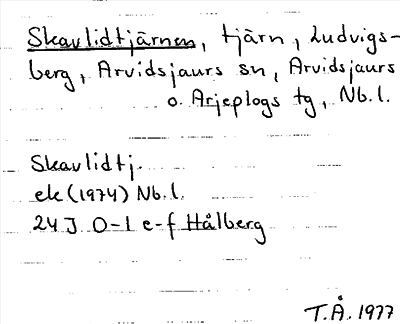 Skavlidtjärnen, tjärn, Ludvigs-
berg, Arvidsjaurs sn, Arvidsjaurs
o. Arjeplogs tg, Nb.l.
Skavlidtj.
ek (1974) Nb.l.
24 J 0-1 e-f Hålberg
T.Å. 1977